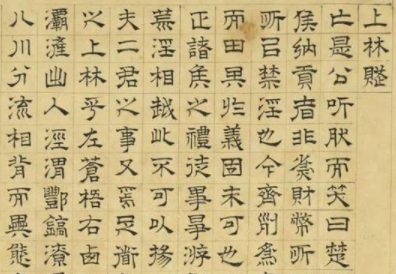 上林賦
亡是公听肰而笑曰楚
矦納貢者非為財幣所
所㠯禁淫也今齊列為
而田其於義固未可也
正諸矦之禮徒事爭游
荒淫相越此不可以揚
夫二君之事又焉足道
之上林乎左蒼梧右卥
灞滻出入涇渭酆鎬潦
八川分流相背而異態